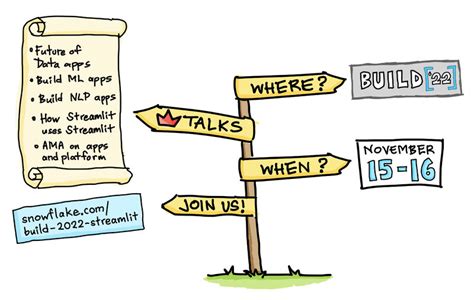 • Future of
Data apps
• Build ML apps
• Build NLP apps
• How Streamlit
uses Streamlit
• AMA on apps
and platform
snowflake.com/
build-2022-streamlit
WHERE?
TALKS
WHEN?
JOIN US!
BUILD ['22]
NOVEMBER
15-16